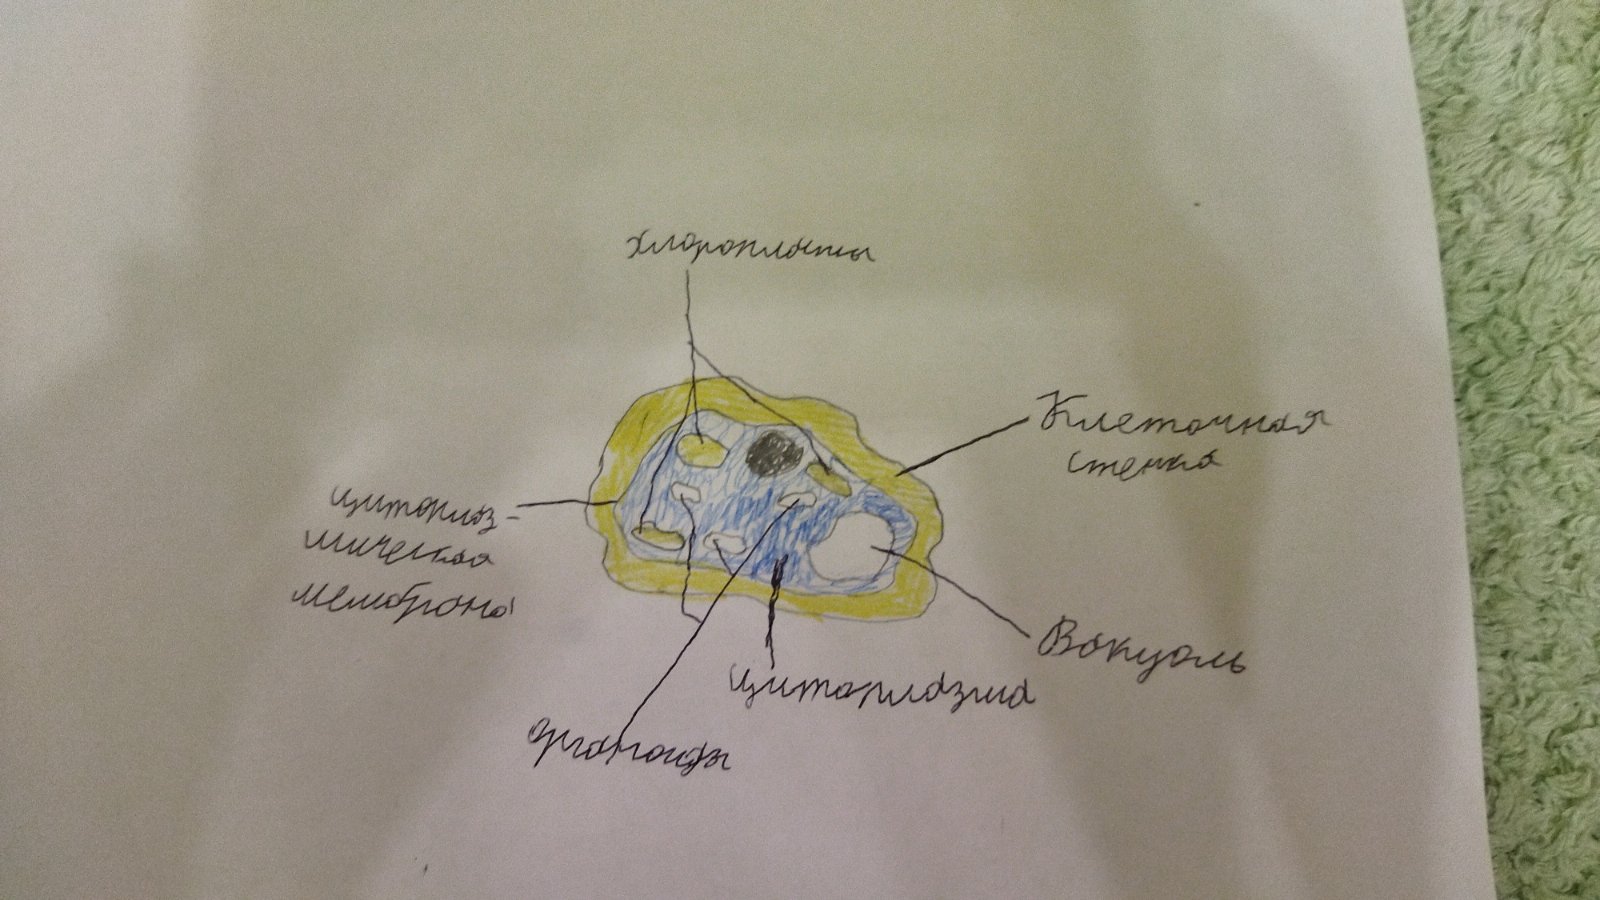 хлоропласты
Клеточная
стенка
цитоплаз-
мическая
мембрана
Вакуоль
цитоплазма
органоиды